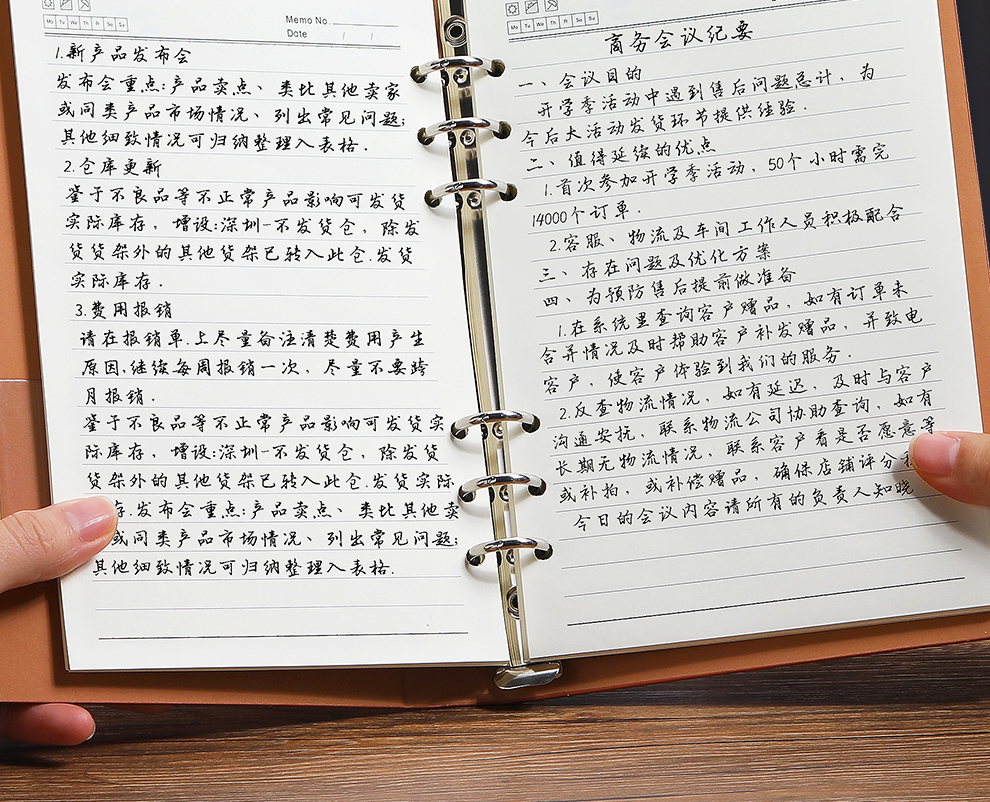 Mo Tu We Th Fr Sa Su
Memo No.
Date / /
1.新产品发布会
发布会重点:产品卖点、类比其他卖家
或同类产品市场情况、列出常见问题;
其他细致情况可归纳整理入表格.
2.仓库更新
鉴于不良品等不正常产品影响可发货
实际库存,增设:深圳-不发货仓,除发
货货架外的其他货架已转入此仓.发货
实际库存.
3.费用报销
请在报销单.上尽量备注清楚费用产生
原因,继续每周报销一次,尽量不要跨
月报销.
鉴于不良品等不正常产品影响可发货实
际库存,增设:深圳-不发货仓,除发货
货架外的其他货架已转入此仓.发货实际
存.发布会重点:产品卖点、类比其他卖
或同类产品市场情况、列出常见问题;
其他细致情况可归纳整理入表格.
Mo Tu We Th Fr Sa Su
商务会议纪要
一、会议目的
开学季活动中遇到售后问题总计,为
今后大活动发货环节提供经验.
二、值得延续的优点
1.首次参加开学季活动,50个小时需完
14000个订单.
2.客服、物流及车间工作人员积极配合
三、存在问题及优化方案
四、为预防售后提前做准备
1.在系统里查询客户赠品,如有订单未
合并情况及时帮助客户补发赠品,并致电
客户,使客户体验到我们的服务.
2.反查物流情况,如有延迟,及时与客户
沟通安抚,联系物流公司协助查询,如有
长期无物流情况,联系客户看是否愿意等
或补拍,或补偿赠品,确保店铺评分
今日的会议内容请所有的负责人知晓